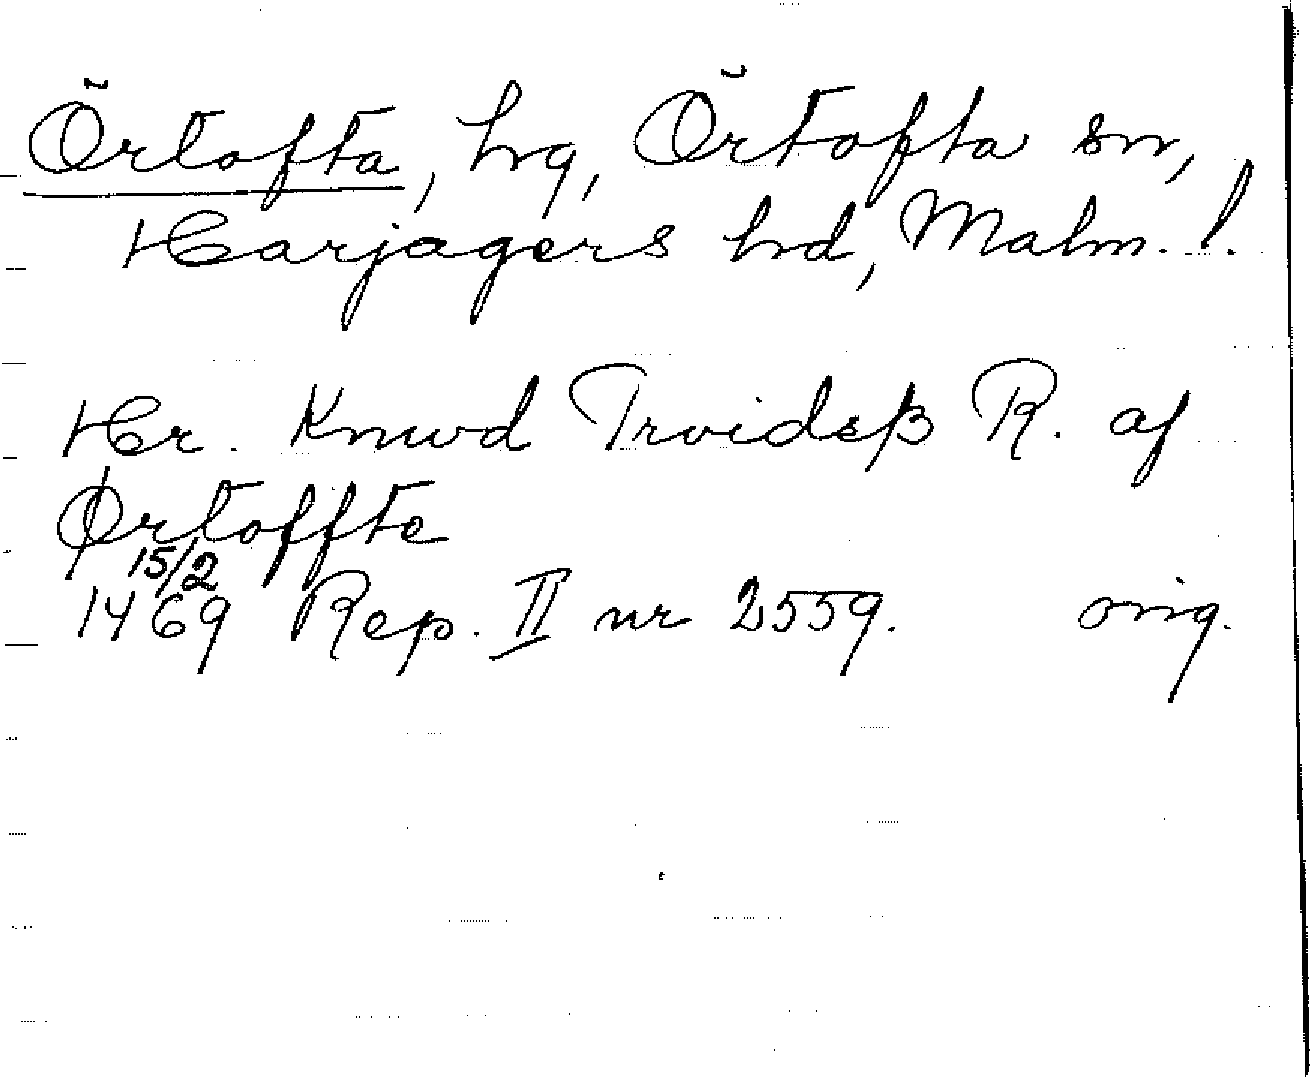 Örtofta, hg, Örtofta sn,
Harjagers hd, Malm. l.
Hr. Knwd Trvidsß R. af
Ørtoffte
15/2
1469 Rep. II nr 2559. orig.